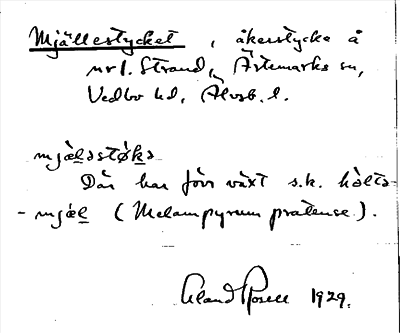 Mjällestycket, åkerstycke å
nr 1. Strand, Ärtemarks sn,
Vedbo hd, Älvsb. l.
mjæ̀l̠əstø̀k̠ə
Där har förr växt s.k. hålts-
-mjæl̠ (Melampyrum pratense).
1929.